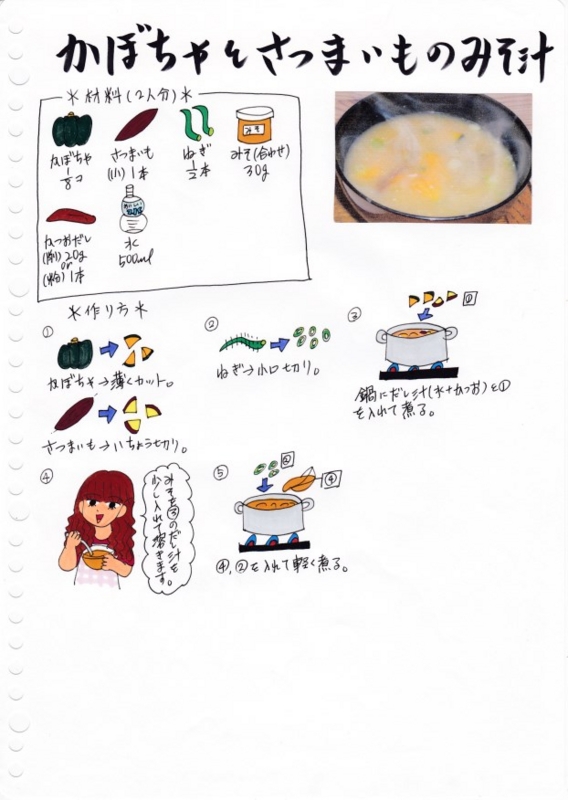 かぼちゃとさつまいものみそ汁
＊材料(2人分)＊
かぼちゃ
1/8コ
さつまいも
(小)1本
ねぎ
1/2本
みそ
みそ(合わせ)
30g
かつおだし
(削)20g
or
(粉)1本
水
500ml
＊作り方＊
①
かぼちゃ→薄くカット。
さつまいも→いちょう切り。
②
ねぎ→小口切り。
③
①
鍋にだし汁(水+かつお)と①
を入れて煮る。
④
みそを③のだし汁を
少し入れて溶きます。
⑤
②
④
④,②を入れて軽く煮る。